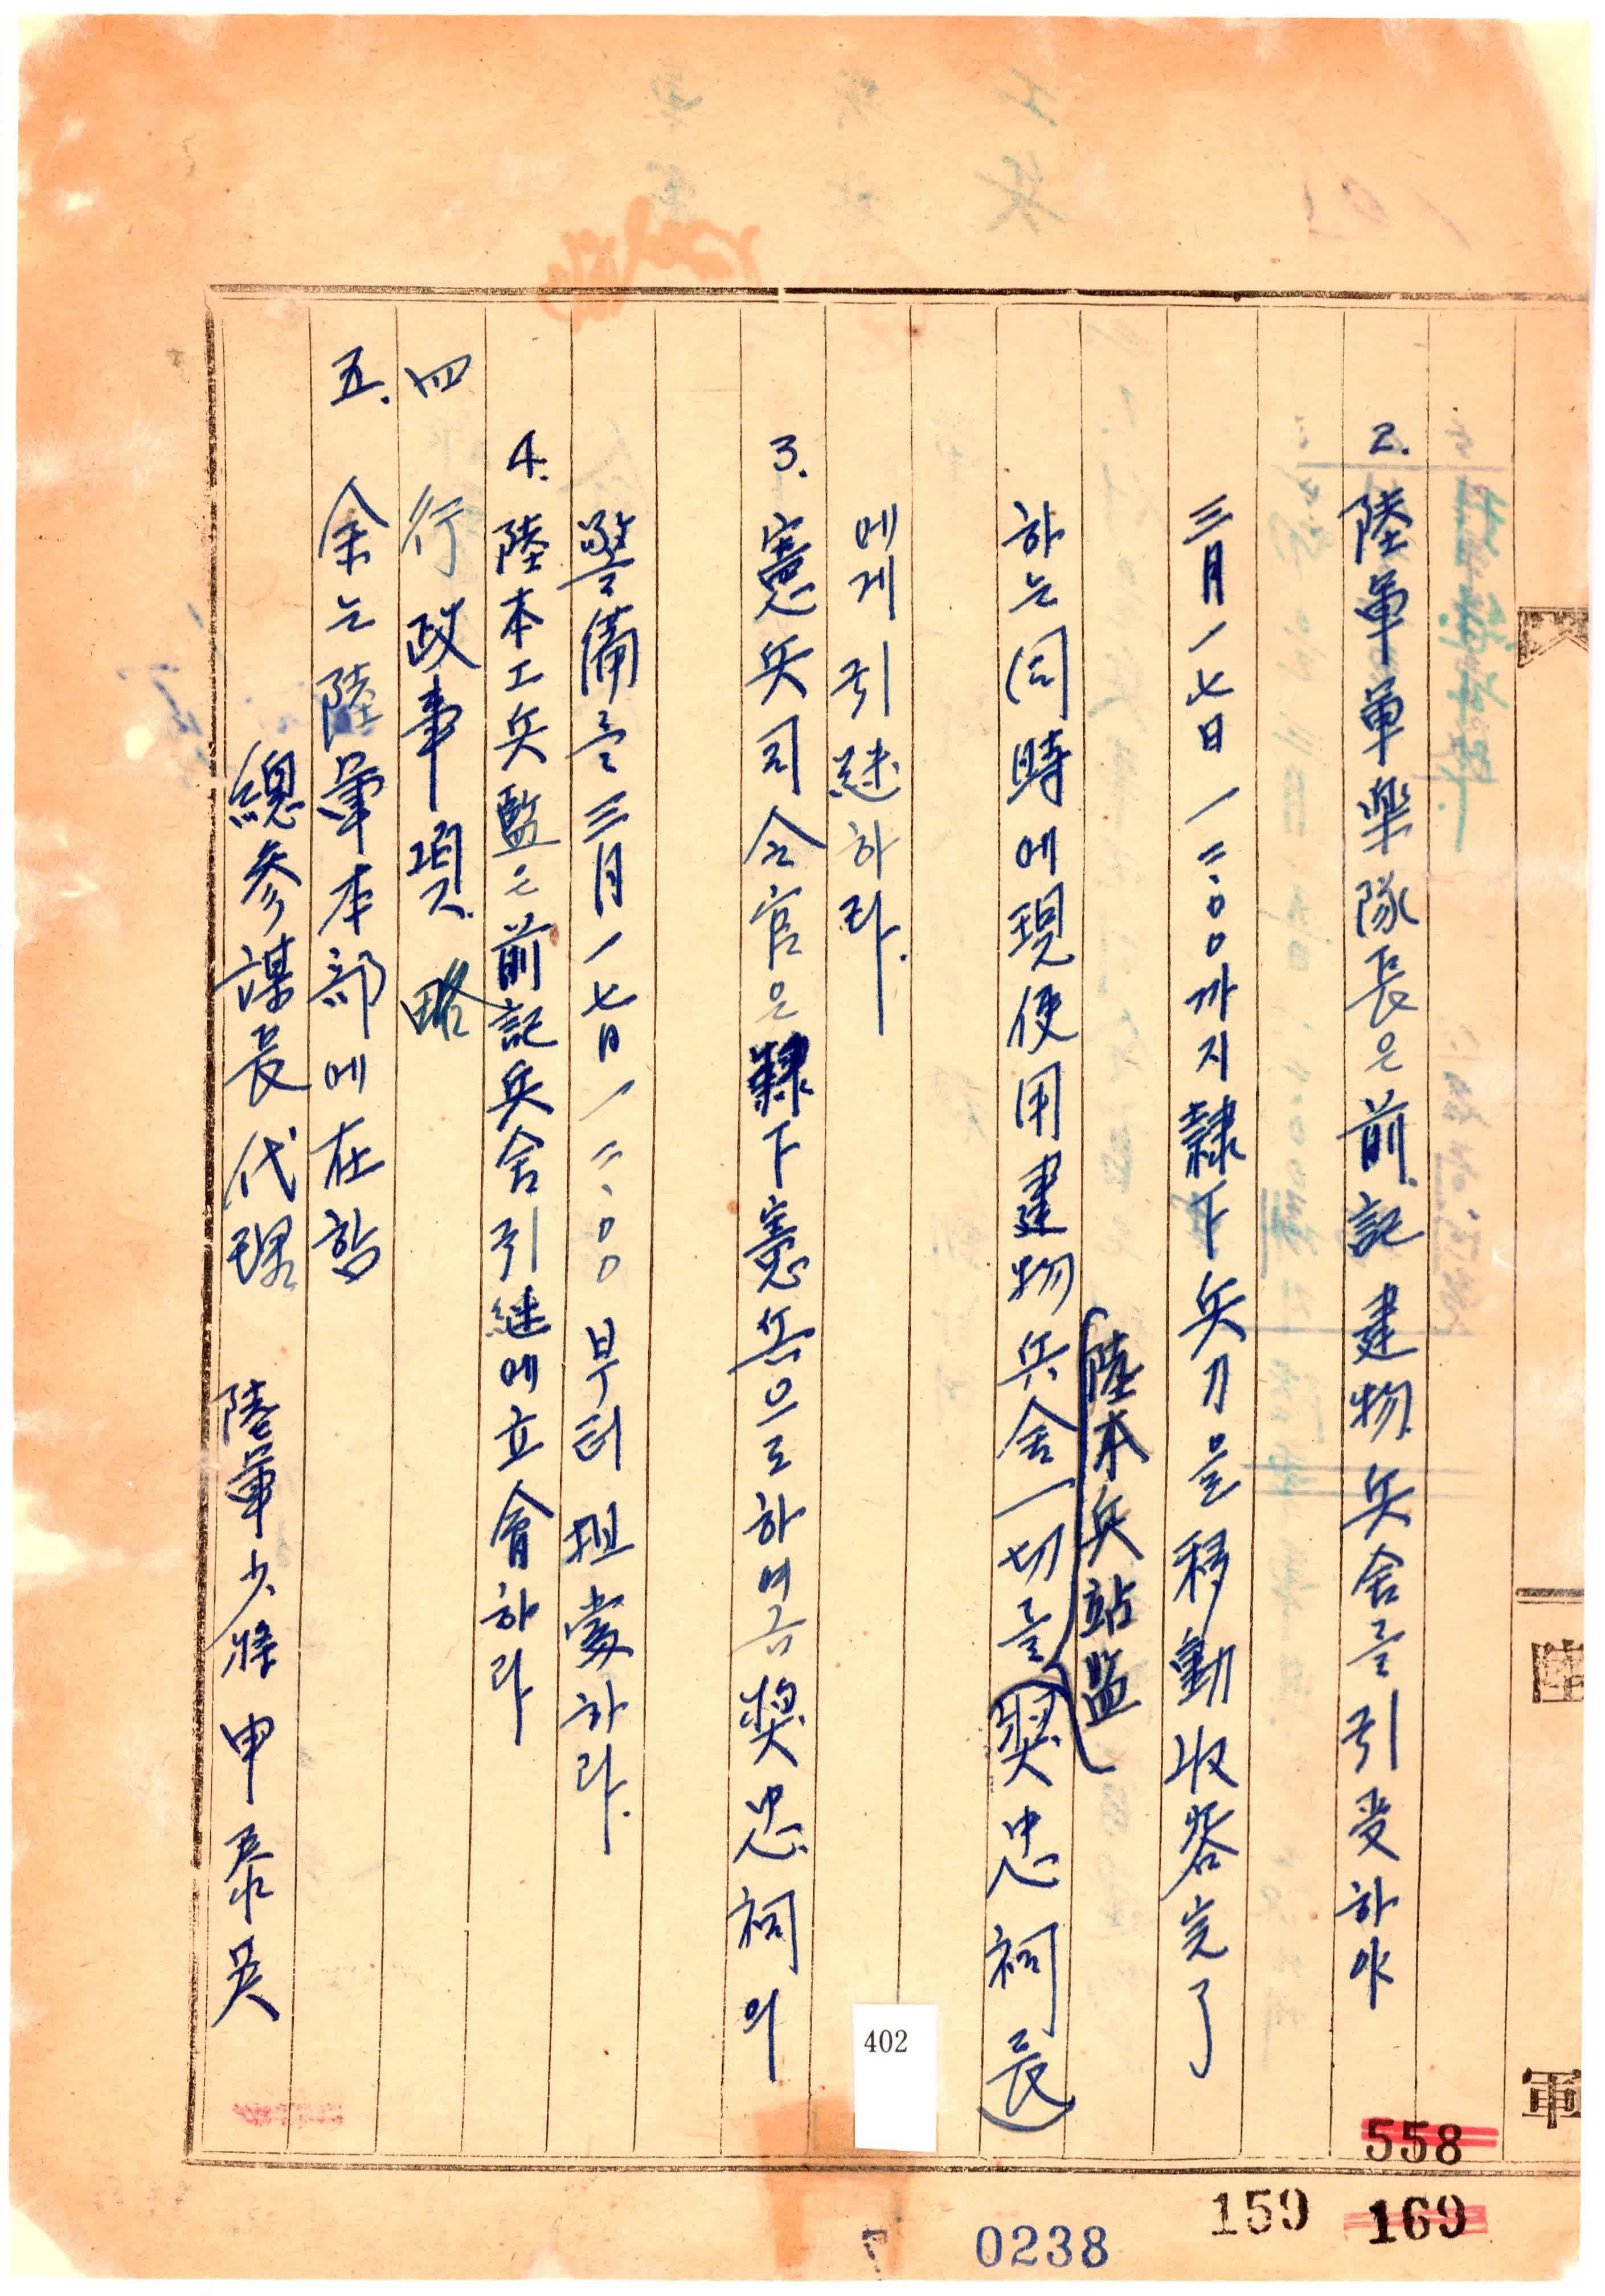 2. 陸軍軍楽隊長은 前記 建物 兵舍를 引受하야
三月一七日 一二.00까지 隷下 兵力을 移動 収容 完了
陸本兵站監
하는 同時에 現使用 建物 兵舍 一切를 (奬忠祠長)
에게 引継하라.
3. 憲兵司令官은 隷下 憲兵으로 하여금 奬忠祠의
警備를 三月一七日 一二.00부터 担當하라.
4. 陸本工兵監은 前記 兵舍 引継에 立會하라
四 行政事項. 略
五. 余는 陸軍本部에 在함
總参謀長代理 陸軍少将 申泰英
陸
軍
402
558
159 169
0238